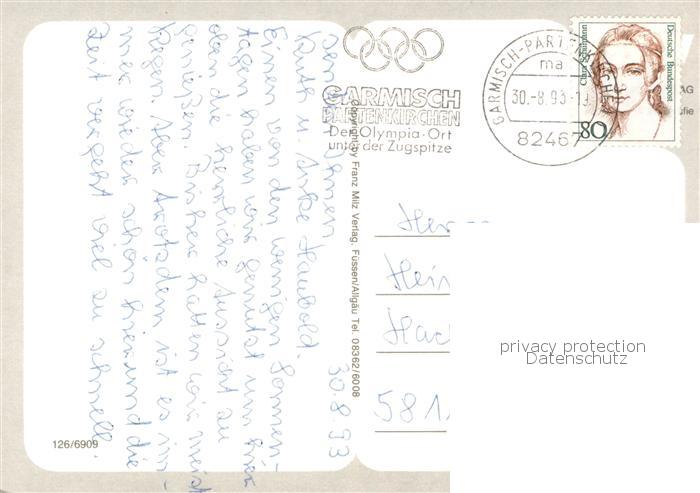 30.8.93
Einen von den wenigen Sonnen-
tagen haben wir genutzt um hier
oben die herrliche Aussicht zu
genießen. Bisher hatten wir meist
Regen. Aber trotzdem ist es im-
mer wieder schön hier und die
Zeit vergeht viel zu schnell.
GARMISCH
PARTENKIRCHEN
Der Olympia-Ort
unter der Zugspitze
GARMISCH-PARTENKIRCHEN
ma
30.-8.93-
82467
Clara Schumann
Deutsche Bundespost
80
AG
Copyright by Franz Milz Verlag, Füssen/Allgäu Tel. 08362/6008
Her
Hein
Hac
581
privacy protection
Datenschutz
126/6909